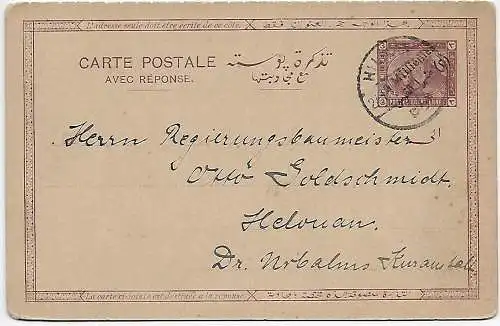 L'adresse seule doit être écrite de ce côté.
CARTE POSTALE تذكرة بوستة
AVEC RÉPONSE. مع مجاوبتها
Herrn Regierungsbaumeister
Otto Goldschmidt.
Helouan.
Dr. Urbahns Kuranstalt
La carte ci-jointe est destinée à la réponse.